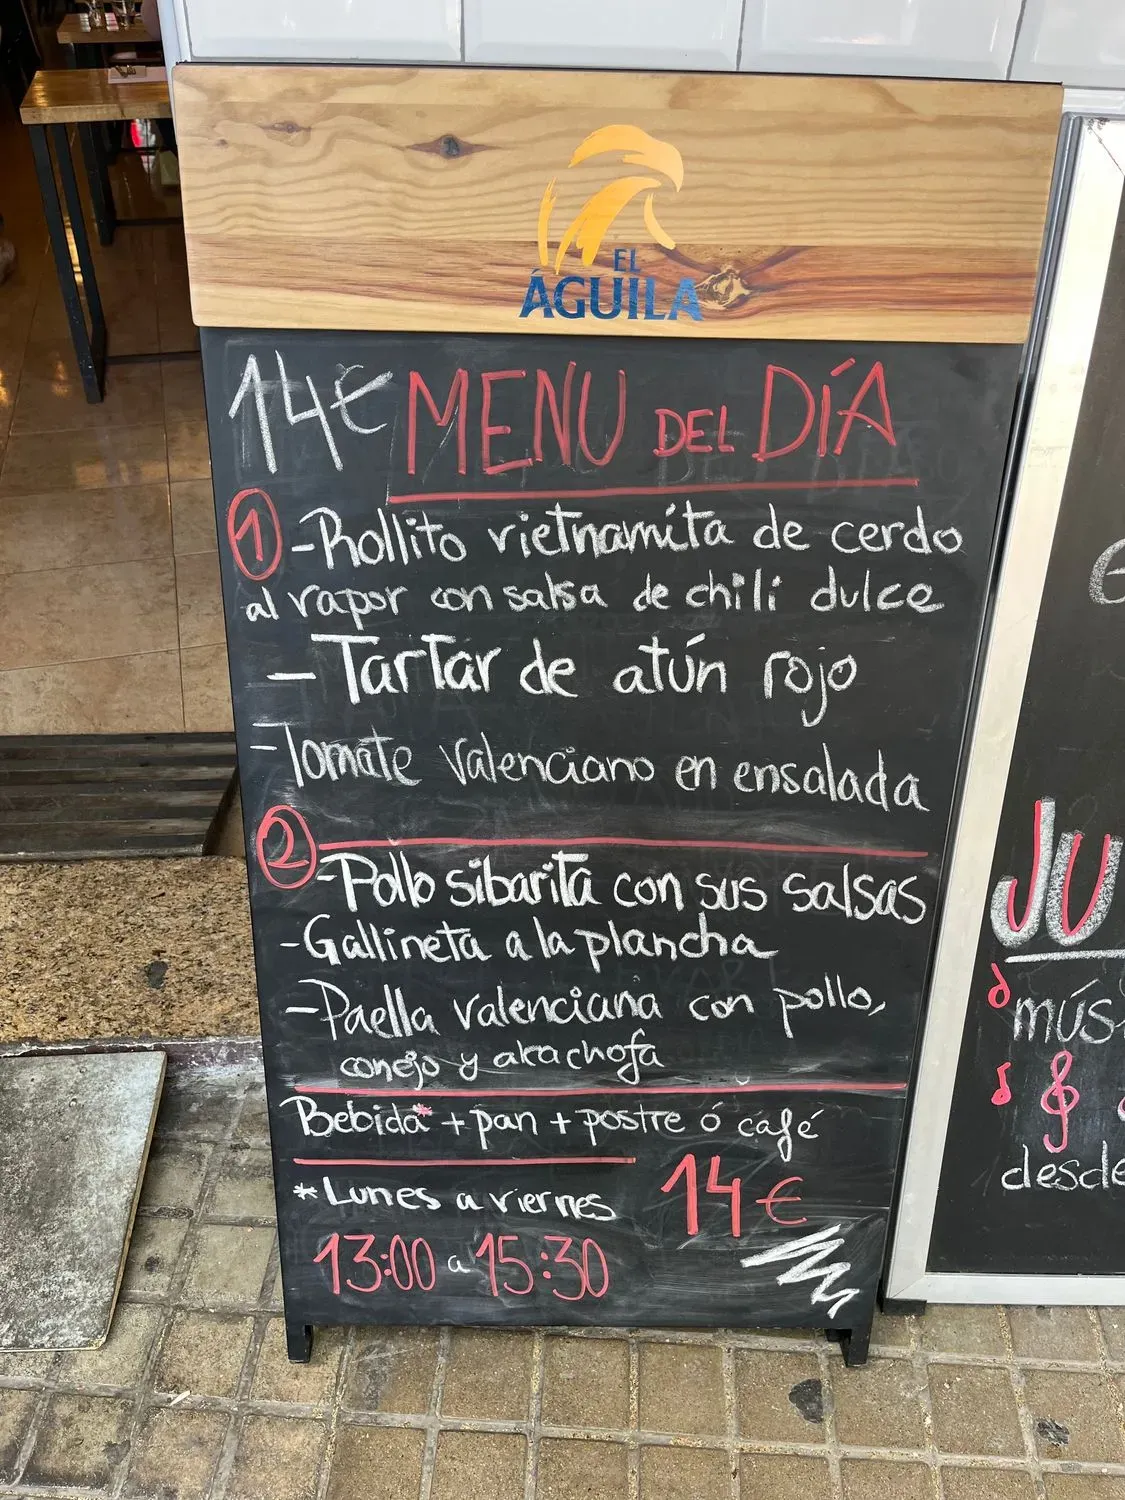 EL
ÁGUILA
14€ MENU DEL DÍA
1 -Rollito vietnamíta de cerdo
al vapor con salsa de chili dulce
- Tartar de atún rojo
-Tomate valenciano en ensalada
2 -Pollo sibarita con sus salsas
-Gallineta a la plancha
-Paella valenciana con pollo,
conejo y alcachofa
Bebida* + pan + postre ó café
*Lunes a viernes 14€
13:00 a 15:30
JU
mús
desde